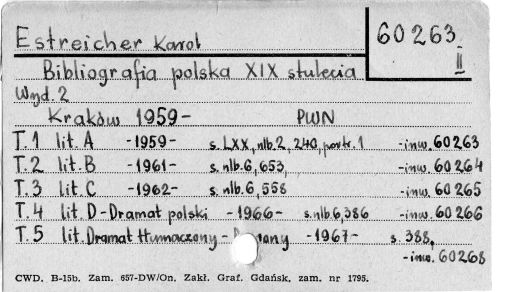 Estreicher Karol
60263
II
Bibliografia polska XIX stulecia
Wyd. 2
Kraków 1959- PWN
T.1 lit. A -1959- s. LXX, nlb.2, 240, portr. 1 -inw. 60263
T.2 lit. B -1961- s. nlb.6, 653, -inw. 60264
T.3 lit. C -1962- s. nlb.6, 558 -inw. 60265
T.4 lit. D-Dramat polski -1966- s. nlb.6, 386 -inw. 60266
T.5 lit. Dramat tłumaczony - -1967- s. 388,
-inw. 60268
CWD. B-15b. Zam. 657-DW/On. Zakł. Graf. Gdańsk, zam. nr 1795.